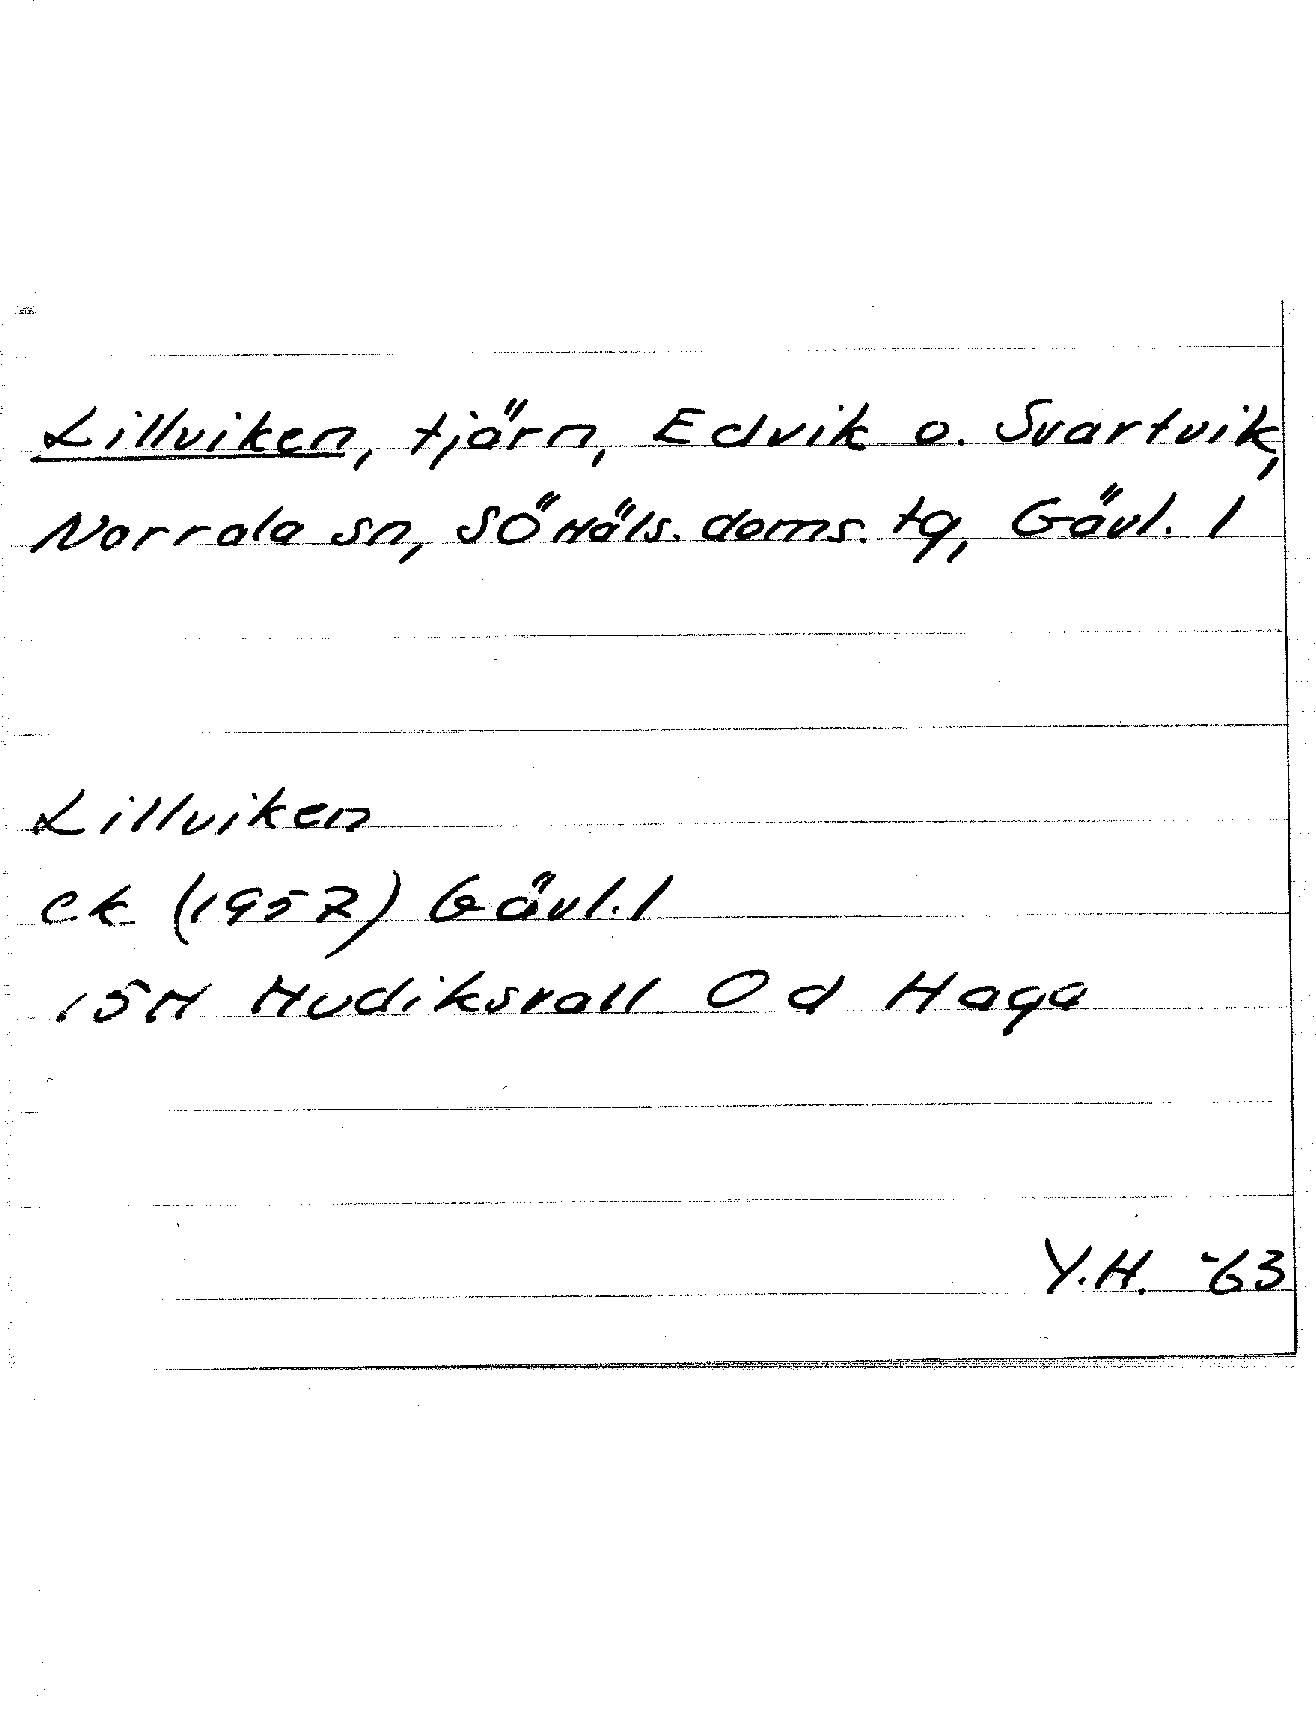 Lillviken, tjärn, Edvik o. Svartvik,
Norrala sn, SÖHäls. doms. tg, Gävl. l
Lillviken
ek (1957) Gävl. l
15H Hudiksvall Od Haga
Y.H. -63